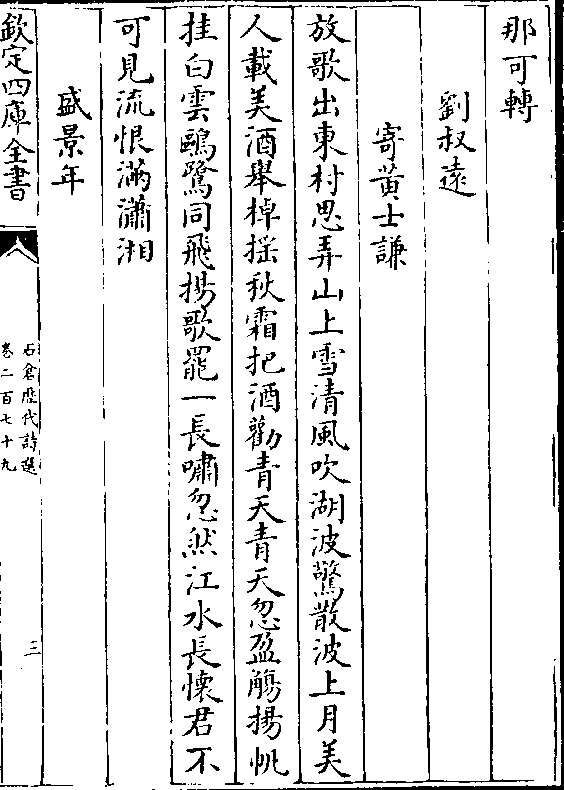 那可轉
劉叔遠
寄黃士謙
放歌出東村思弄山上雪清風吹湖波驚散波上月美
人載美酒舉棹揺秋霜把酒勸青天青天忽盈觴揚帆
挂白雲鷗鷺同飛揚歌罷一長嘯忽然江水長懷君不
可見流恨滿瀟湘
盛景年
欽定四庫全書
石倉歴代詩選
卷二百七十九
三